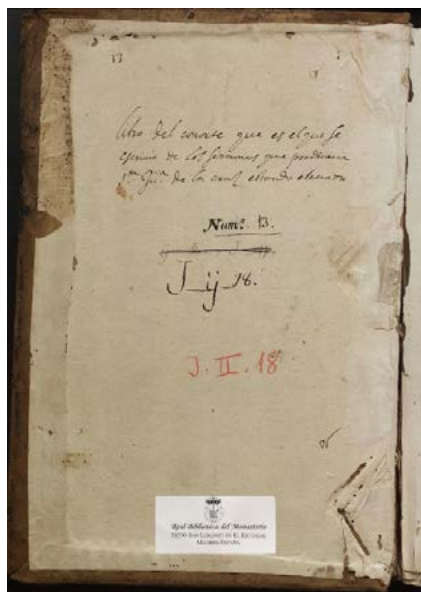 13
libro del conorte que es el que se
escriuio de los sermones que predicaua
de la cruz estando eleuada
Num.º 13.
J ij 18.
J. II. 18
Real Biblioteca del Monasterio
28200 San Lorenzo de El Escorial
Madrid-España